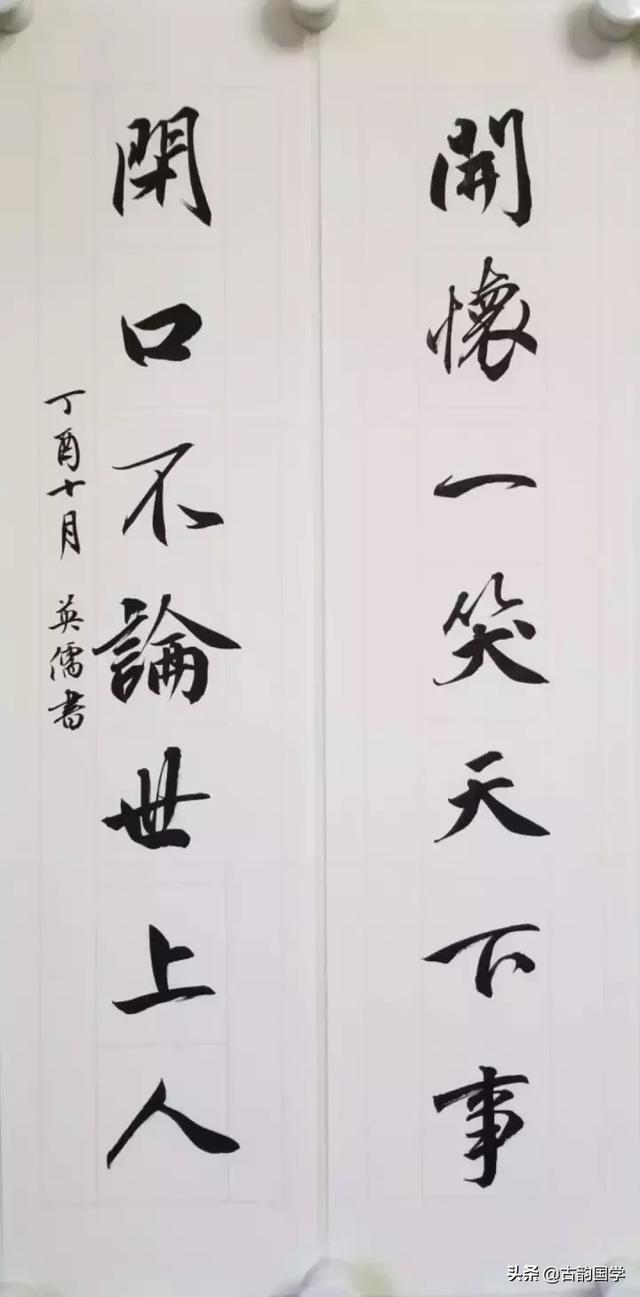 開懷一笑天下事
閉口不論世上人
丁酉十月 英儒書
头条 @古韵国学